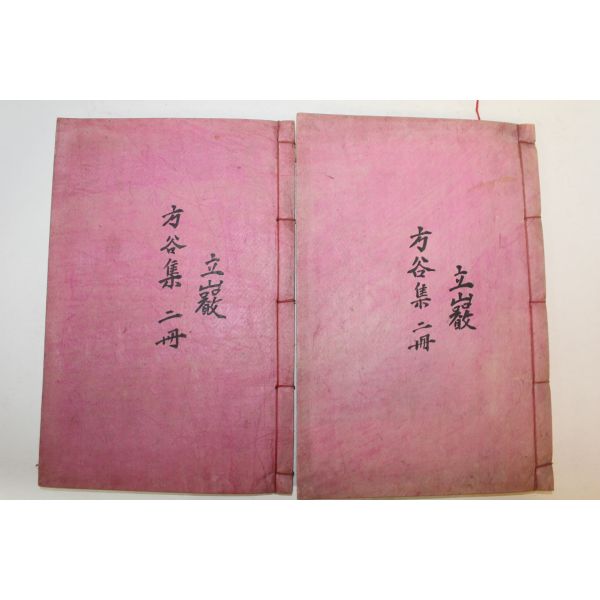 立巖
方谷集 二冊
立巖
方谷集 二冊